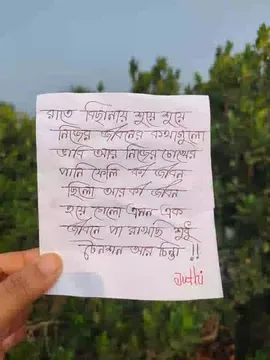 রাতে বিছানায় শুয়ে শুয়ে
নিজের জীবনের কথাগুলো
ভাবি আর নিজের চোখের
পানি ফেলি কী জীবন
ছিলো আর কী জীবন
হয়ে গেলো এমন এক
জীবনে পা রাখছি শুধু
টেনশন আর চিন্তা !!